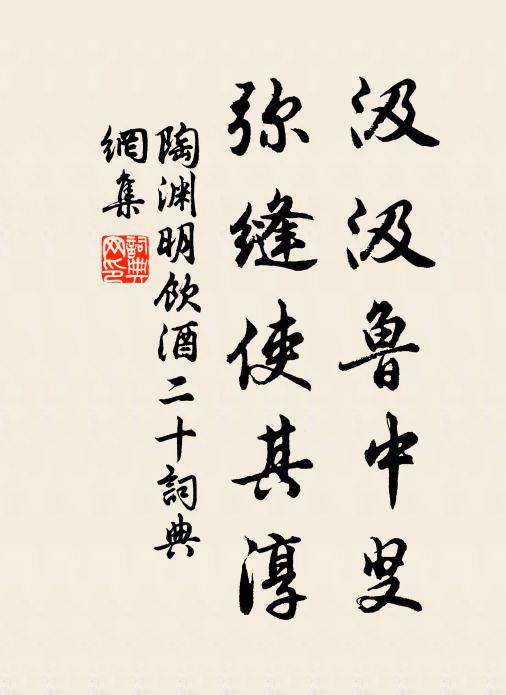 汲汲鲁中叟
弥缝使其淳
陶渊明饮酒二十詞典
網集
詞典
网印